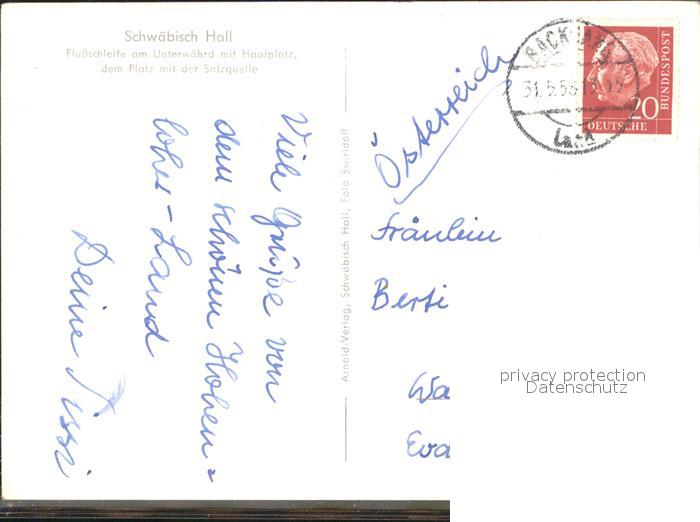 Schwäbisch Hall
Flußschleife am Unterwöhrd mit Haalplatz,
dem Platz mit der Salzquelle
Viele Grüße von
dem schönen Hohen=
loher-Land
Deine Sissi
Arnold-Verlag, Schwäbisch Hall, Foto Swiridoff
BACKNANG
Land
20
DEUTSCHE
BUNDESPOST
Österreich
Fräulein
Berti
Wa
Eva
privacy protection
Datenschutz